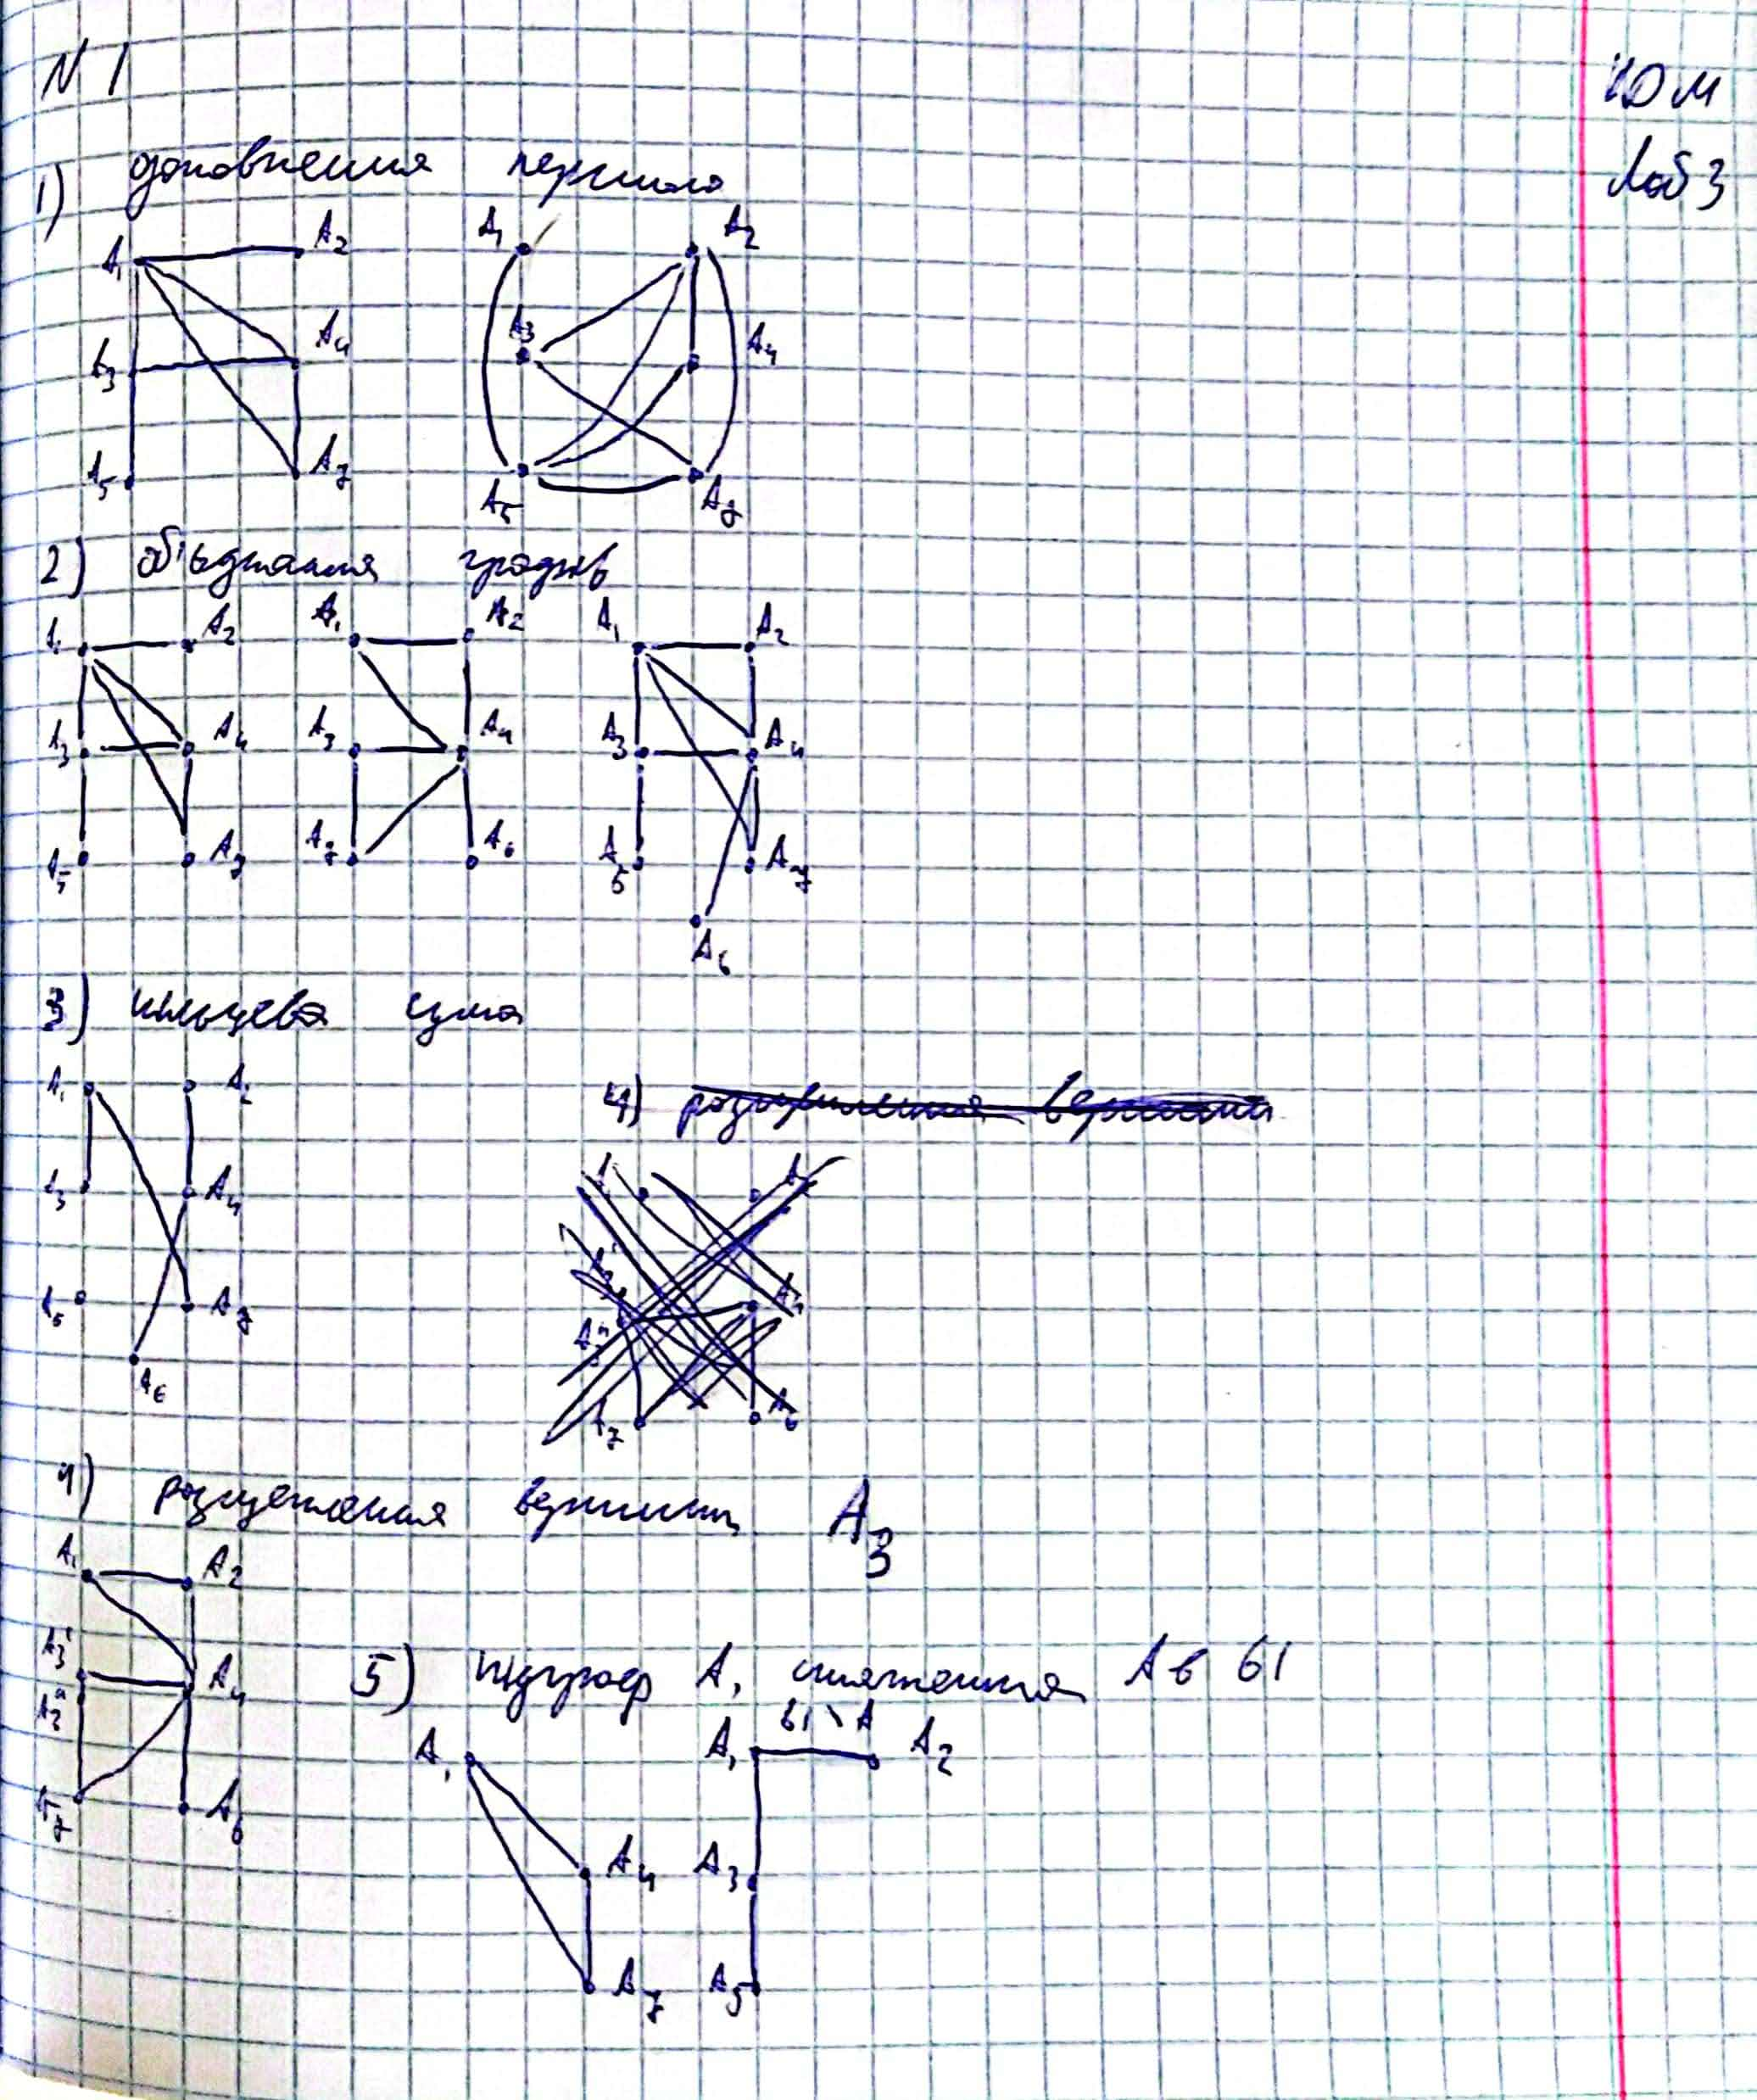 N 1
ЮМ
Лаб 3
1) доповнення першого
A1 A2 A1 A2
A3 A4 A3 A4
A5 A7 A5 A7
2) об'єднання графів
A1 A2 A1 A2 A1 A2
A3 A4 A3 A4 A3 A4
A5 A7 A7 A6 A5 A7
A6
3) кільцева сума
A1 A2
A3 A4
A5 A7
A6
4) розщеплення вершини
4) розщеплення вершини A3
A1 A2
A3' A4
A7 A6
5) підграф A, стягнення A в G1
G1 \ A
A1 A1 A2
A4 A3
A7 A5